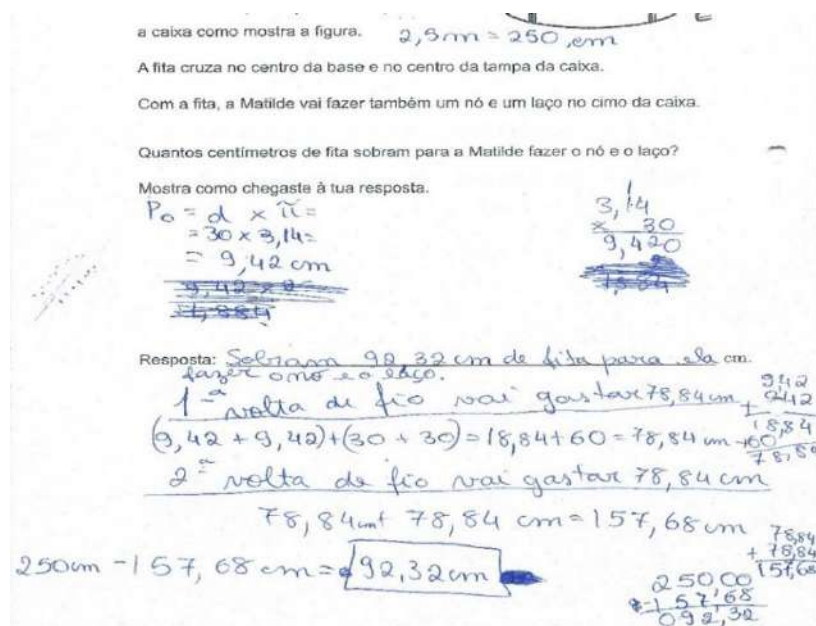 a caixa como mostra a figura. 2,5m = 250 cm
A fita cruza no centro da base e no centro da tampa da caixa.
Com a fita, a Matilde vai fazer também um nó e um laço no cimo da caixa.
Quantos centímetros de fita sobram para a Matilde fazer o nó e o laço?
Mostra como chegaste à tua resposta.
P₀ = d x π =
= 30 x 3,14 =
= 9,42 cm
9,42 x 2
1,884
1
3,14
x 30
9,420
1,884
Resposta: Sobram 92,32 cm de fita para ela cm.
fazer o nó e o laço.
1ª volta de fio vai gastar 78,84 cm
(9,42 + 9,42) + (30 + 30) = 18,84 + 60 = 78,84 cm
9,42
+ 9,42
18,84
+60
78,84
2ª volta de fio vai gastar 78,84 cm
78,84 cm + 78,84 cm = 157,68 cm
78,84
+ 78,84
157,68
250cm - 157,68 cm = 92,32 cm
25000
- 157,68
092,32